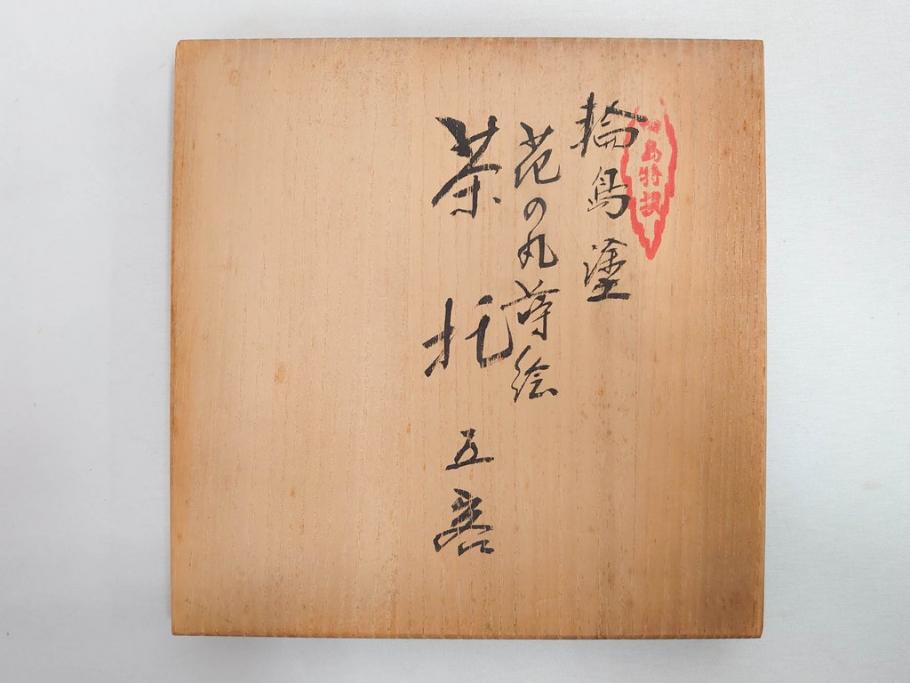 輪島塗
花の丸蒔絵
茶托 五客
島特撰